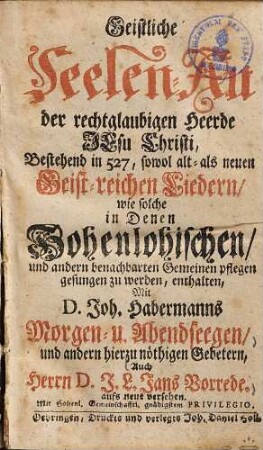 Geistliche
Seelen-Au
der rechtglaubigen Heerde
JEsu Christi,
Bestehend in 527, sowol alt- als neuen
Geist-reichen Liedern/
wie solche
in Denen
Hohenlohischen/
und andern benachbarten Gemeinen pflegen
gesungen zu werden, enthalten,
Mit
D. Joh. Habermanns
Morgen- u. Abendseegen/
und andern hierzu nöthigen Gebetern,
Auch
Herrn D. J. L. Jans Vorrede.
aufs neue versehen.
Mit Hohenl. Gemeinschafftl. gnädigstem PRIVILEGIO,
Oehringen, Druckts und verlegts Joh. Daniel Holl.